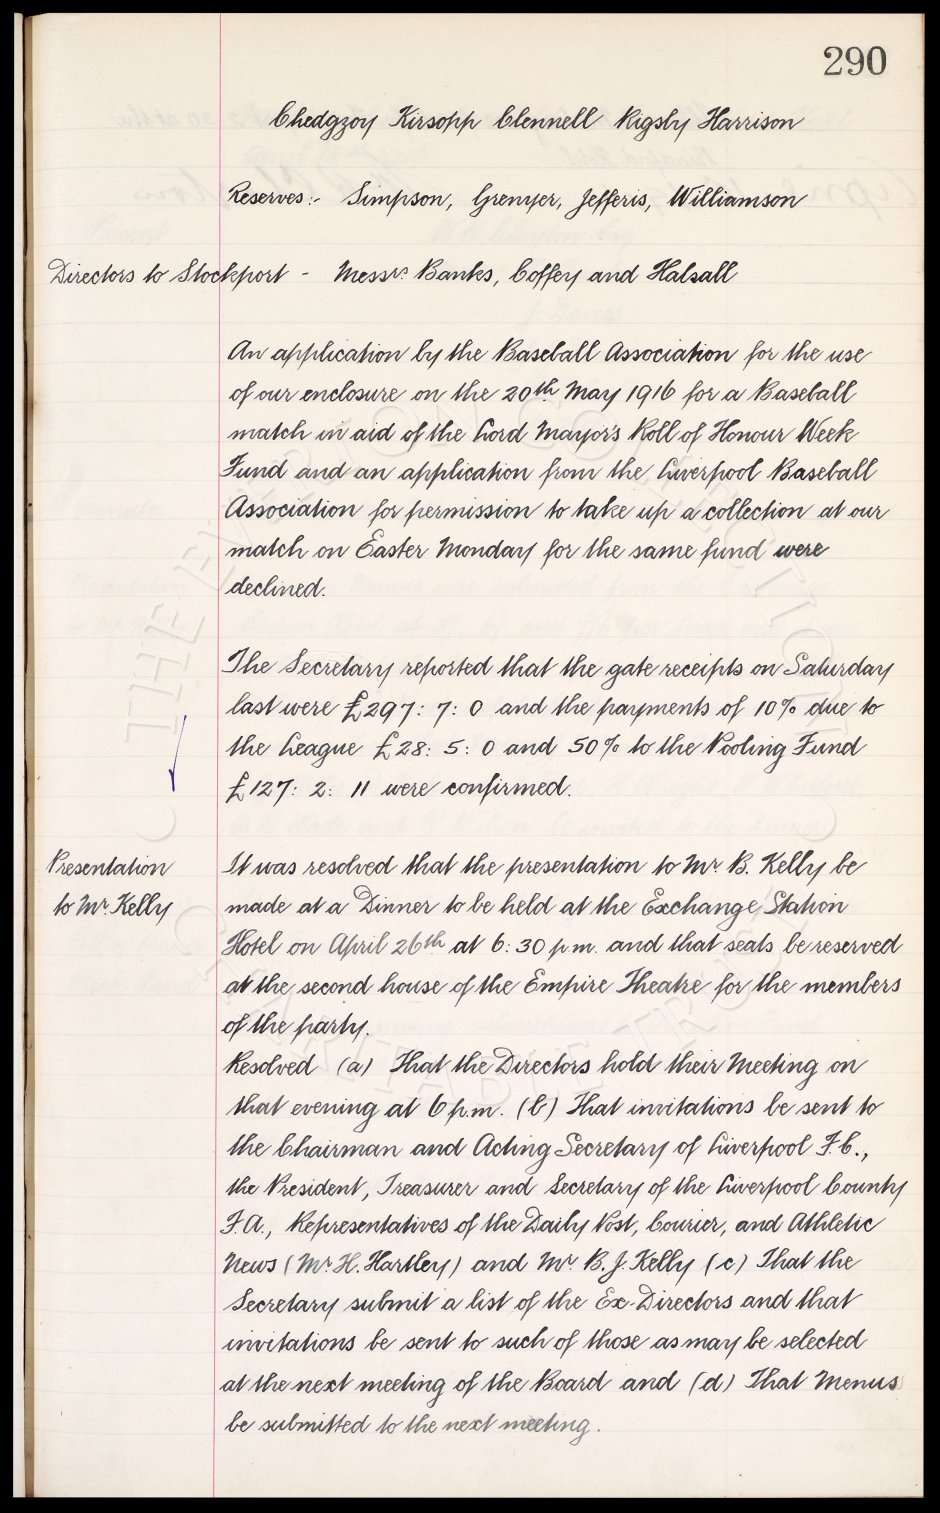 290
Chedgzoy Kirsopp Clennell Rigsby Harrison
Reserves:- Simpson, Grenyer, Jefferis, Williamson
Directors to Stockport - Messrs. Banks, Coffey and Halsall
An application by the Baseball Association for the use
of our enclosure on the 20th May 1916 for a Baseball
match in aid of the Lord Mayor's Roll of Honour Week
Fund and an application from the Liverpool Baseball
Association for permission to take up a collection at our
match on Easter Monday for the same fund were
declined.
The Secretary reported that the gate receipts on Saturday
last were £297: 7: 0 and the payments of 10% due to
the League £28: 5: 0 and 50% to the Pooling Fund
£127: 2: 11 were confirmed.
Presentation
to Mr. Kelly
It was resolved that the presentation to Mr. B. Kelly be
made at a Dinner to be held at the Exchange Station
Hotel on April 26th at 6:30 p.m. and that seats be reserved
at the second house of the Empire Theatre for the members
of the party.
Resolved (a) That the Directors hold their Meeting on
that evening at 6 p.m. (b) That invitations be sent to
the Chairman and Acting Secretary of Liverpool F.C.,
the President, Treasurer and Secretary of the Liverpool County
F.A., Representatives of the Daily Post, Courier, and Athletic
News (Mr H. Hartley) and Mr. B. J. Kelly (c) That the
Secretary submit a list of the Ex-Directors and that
invitations be sent to such of those as may be selected
at the next meeting of the Board and (d) That Menus
be submitted to the next meeting.